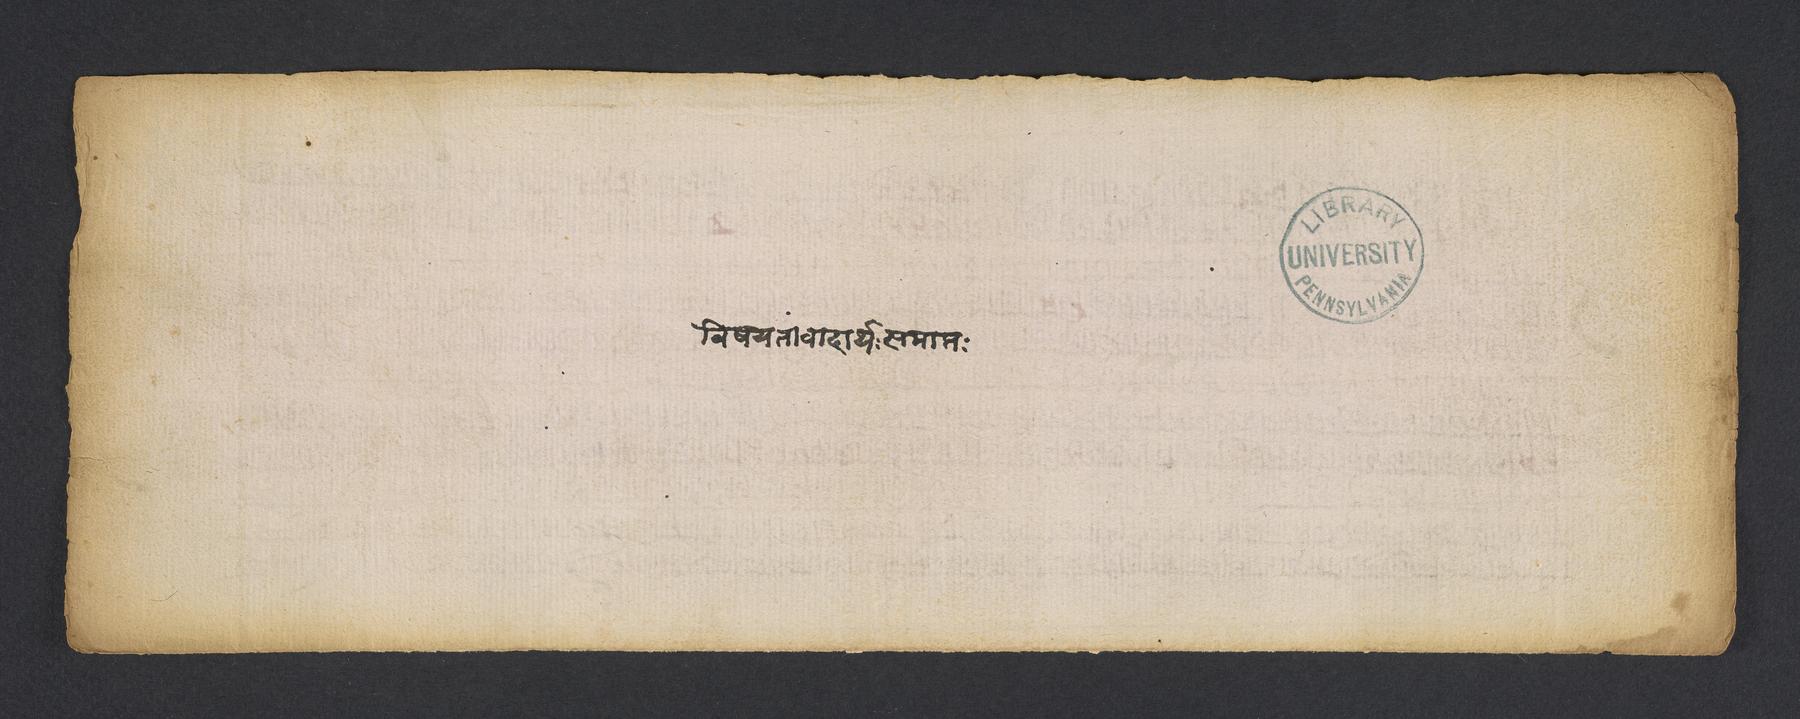 विषयतावादार्थः समाप्तः
LIBRARY
UNIVERSITY
PENNSYLVANIA